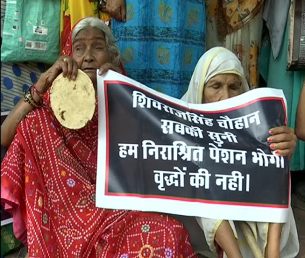 शिवराजसिंह चौहान
सबकी सुनी
हम निराश्रित पेंशन भोगी
वृद्धों की नही।